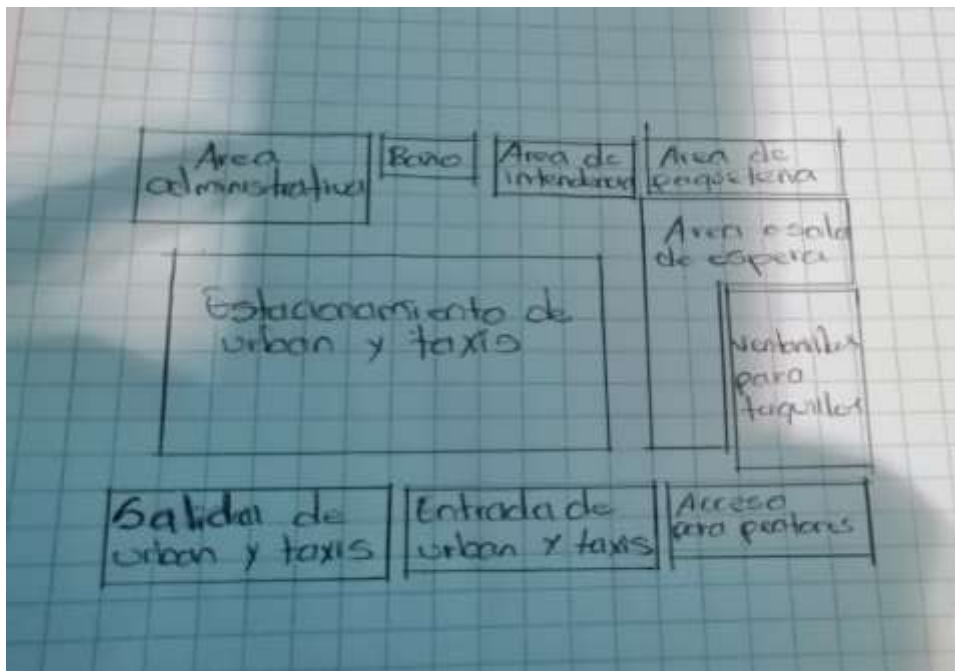 Area
administrativa
Baño
Area de
intendencia
Area de
paqueteria
Area o sala
de espera
Estacionamiento de
urban y taxis
ventanillas
para
taquillas
Salida de
urban y taxis
Entrada de
urban y taxis
Acceso
para peatones